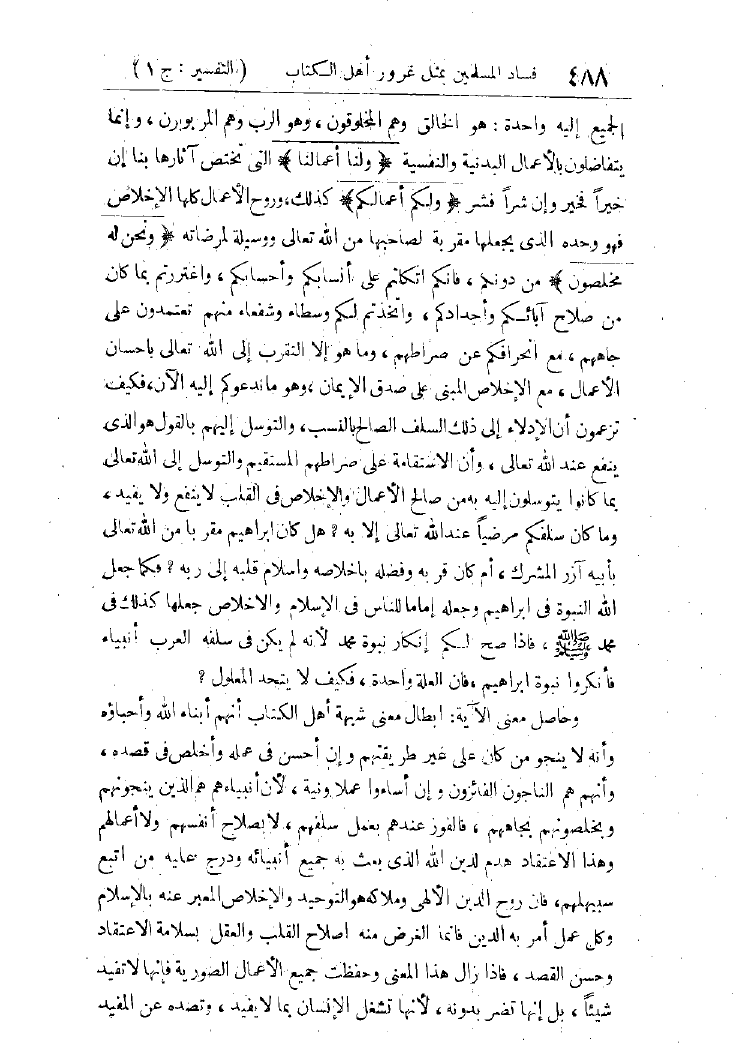 ٤٨٨ فساد المسلمين بمثل غرور أهل الكتاب (التفسير : ج ١)
الجميع إليه واحدة : هو الخالق وهم المخلوقون ، وهو الرب وهم المربوبون ، وإنما
يتفاضلون بالأعمال البدنية والنفسية ﴿ ولنا أعمالنا ﴾ التى تختص آثارها بنا إن
خيراً فخير وإن شراً فشر ﴿ ولكم أعمالكم ﴾ كذلك، وروح الأعمال كلها الإخلاص
فهو وحده الذى يجعلها مقربة لصاحبها من الله تعالى ووسيلة لمرضاته ﴿ ونحن له
مخلصون ﴾ من دونكم ، فانكم اتكلتم على أنسابكم وأحسابكم ، واغتررتم بما كان
من صلاح آبائكم وأجدادكم ، واتخذتم لكم وسطاء وشفعاء منهم تعتمدون على
جاههم ، مع انحرافكم عن صراطهم ، وما هو إلا التقرب إلى الله تعالى باحسان
الأعمال ، مع الإخلاص المبنى على صدق الإيمان ، وهو ماندعوكم إليه الآن، فكيف
تزعمون أن الإدلاء إلى ذلك السلف الصالح بالنسب ، والتوسل إليهم بالقول هو الذى
ينفع عند الله تعالى ، وأن الاستقامة على صراطهم المستقيم والتوسل إلى الله تعالى
بما كانوا يتوسلون إليه به من صالح الأعمال والإخلاص فى القلب لاينفع ولا يفيد ،
وما كان سلفكم مرضياً عند الله تعالى إلا به ؟ هل كان ابراهيم مقربا من الله تعالى
بأبيه آزر المشرك ، أم كان قربه وفضله باخلاصه واسلام قلبه إلى ربه ؟ فكما جعل
الله النبوة فى ابراهيم وجعله إماما للناس فى الإسلام والاخلاص جعلها كذلك فى
محمد ﷺ ، فاذا صح لكم إنكار نبوة محمد لأنه لم يكن فى سلفه العرب أنبياء
فأنكروا نبوة ابراهيم ، فان العلة واحدة ، فكيف لا يتحد المعلول ؟
وحاصل معنى الآية : ابطال معنى شبهة أهل الكتاب أنهم أبناء الله وأحباؤه
وأنه لا ينجو من كان على غير طريقتهم وإن أحسن فى عمله وأخلص فى قصده ،
وأنهم هم الناجون الفائزون وإن أساءوا عملا ونية ، لأن أنبياءهم هم الذين ينجونهم
ويخلصونهم بجاههم ، فالفوز عندهم بعمل سلفهم ، لا بصلاح أنفسهم ولا أعمالهم
وهذا الاعتقاد هدم لدين الله الذى بعث به جميع أنبيائه ودرج عليه من اتبع
سبيهلهم، فان روح الدين الألهى وملاكه هو التوحيد والإخلاص المعبر عنه بالإسلام
وكل عمل أمر به الدين فانما الغرض منه اصلاح القلب والعقل بسلامة الاعتقاد
وحسن القصد ، فاذا زال هذا المعنى وحفظت جميع الأعمال الصورية فإنها لا تفيد
شيئاً ، بل إنها تضر بدونه ، لأنها تشغل الإنسان بما لا يفيد ، وتصده عن المفيد